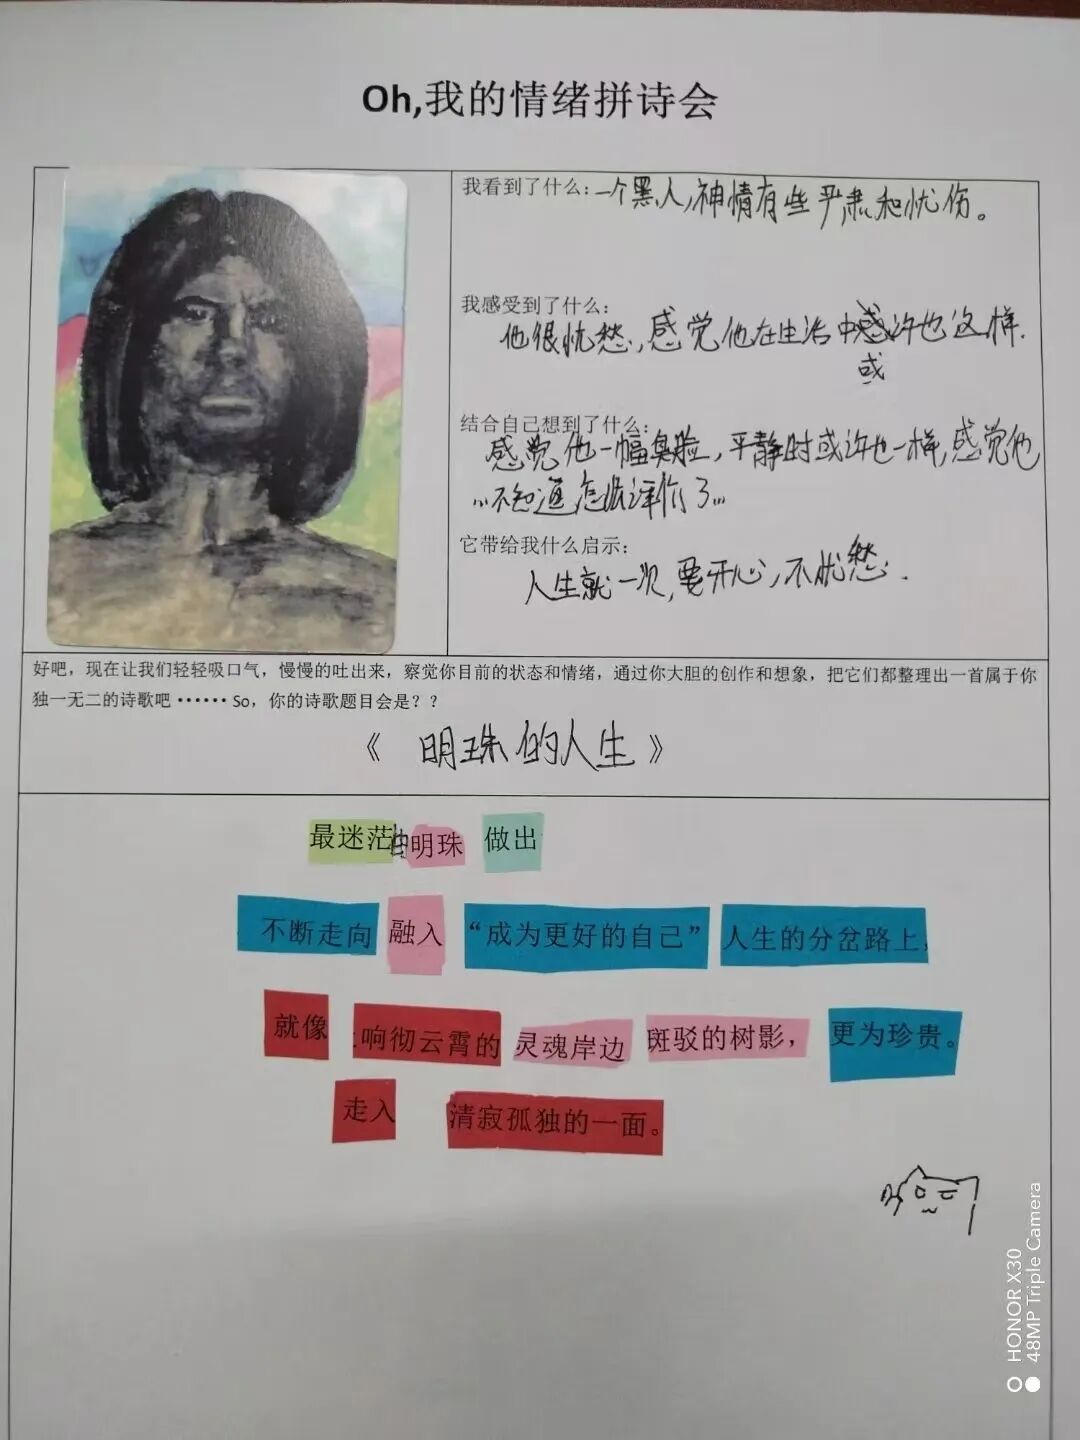 Oh,我的情绪拼诗会
我看到了什么：一个黑人，神情有些严肃和忧伤。
我感受到了什么：
他很忧愁，感觉他在生活中或许也这样.
结合自己想到了什么：
感觉他一幅臭脸，平静时或许也一样，感觉他
...不知道怎么评价了...
它带给我什么启示：
人生就一次，要开心，不忧愁.
好吧，现在让我们轻轻吸口气，慢慢的吐出来，察觉你目前的状态和情绪，通过你大胆的创作和想象，把它们都整理出一首属于你
独一无二的诗歌吧 ······ So，你的诗歌题目会是？？
《 明珠的人生 》
最迷茫的明珠 做出
不断走向 融入 “成为更好的自己” 人生的分岔路上，
就像 响彻云霄的 灵魂岸边 斑驳的树影， 更为珍贵。
走入 清寂孤独的一面。
HONOR X30
48MP Triple Camera